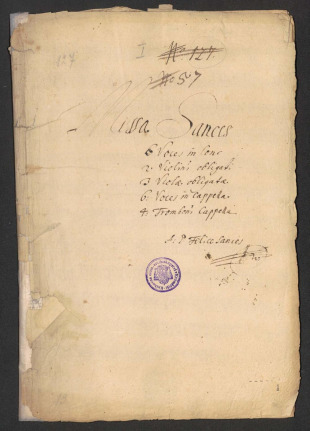 127
I No 127.
No 507
Missa Sances
6 Voces in Conc
2 Violini obligati
3 Violæ obligatæ
6 Voces in Cappella
4 Tromboni Cappella
Felice Sances